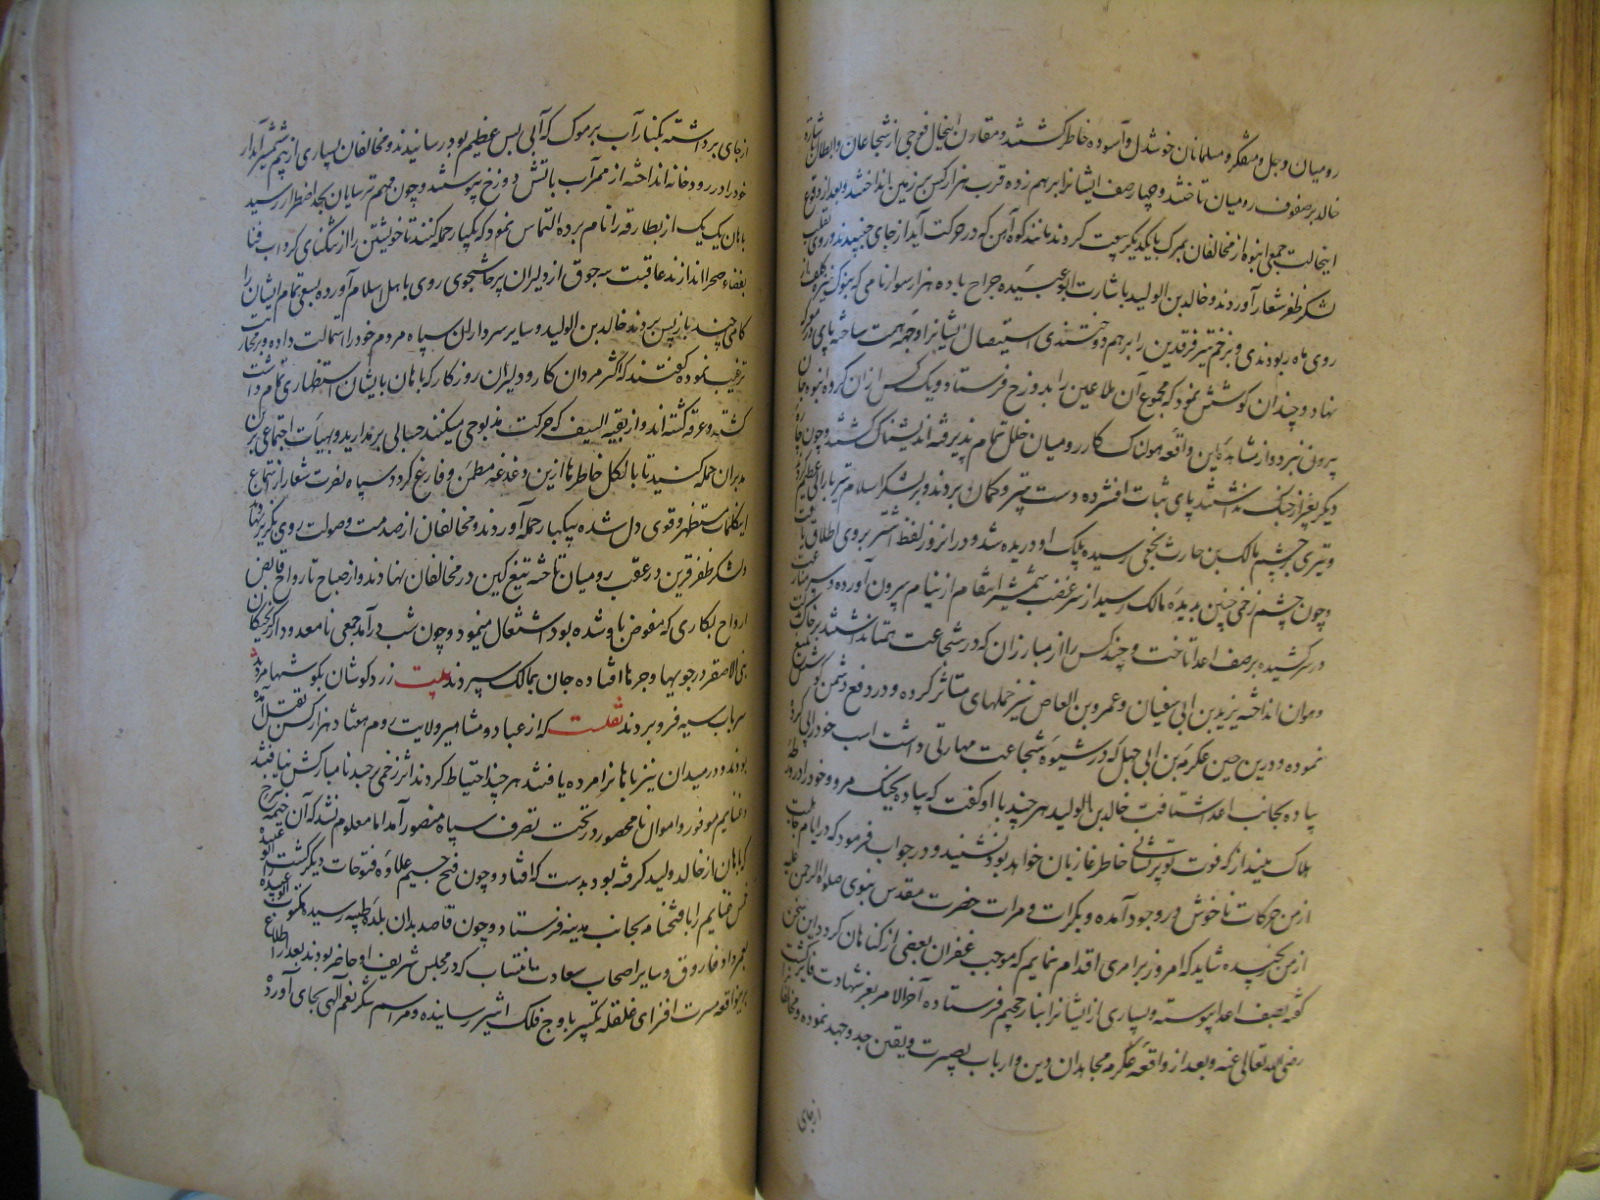 رومیان وجل و متفکر و مسلمانان خوشدل و آسوده خاطر کشتند و مقارن اینحال فوجی از شجاعان و ابطال باشارة
خالد بر صفوف رومیان تاختند و چهار صف ایشانرا بر هم زده قرب هزار کس بر زمین انداختند و بعد از وقوع
اینحالت جمعی انبوه از مخالفان بمرک با یکدیکر بیعت کردند مانند کوه آهن که در حرکت آید از جای جنبیدند و روی بقلب
لشکر ظفر شعار آوردند و خالد بن الولید باشارت ابو عبیده جراح با ده هزار سوار نامی که بنوک نیزه کلف از
روی ماه ربودندی و بزخم تیر فرقدین را بر هم دوختندی استیصال ایشانرا وجهه همت ساخته پای در معرکه
نهاد و چندان کوشش نمود که مجموع آن ملاعین را بدوزخ فرستاد و یک کس از ان کروه انبوه جان
بیرون نبرد و از مشاهدهٔ این واقعه هولناک کار رومیان خلل تمام پذیرفته اندیشناک کشتند و چون چارهٔ
دیکر بغیر از جنک نداشتند پای ثبات افشرده دست بتیر و کمان بردند و بر لشکر اسلام تیرباران عظیم کردند
و تیری بچشم مالک بن حارث نخعی رسیده پلک او دریده شد و در انروز لفظ اشتر بروی اطلاق یافت
و چون چشم زخمی چنین بدیدهٔ مالک رسید از سر غضب شمشیر انتقام از نیام بیرون آورده و سپر
در سر کشیده بر صف اعدا تاخت و چند کس را از مبارزان که در شجاعت همتا نداشتند بر خاک
و هوان انداخته یزید بن ابی سفیان و عمرو بن العاص نیز حملهای متاثر کرده و در دفع دشمن کوشش
نموده و درین حین عکرمه بن ابی جهل که در شیوهٔ شجاعت مهارتی داشت اسب خود را پی کرد
پیاده بجانب اعدا شتافت خالد بن الولید هر چند با او کفت که پیاده بجنک مرو و خود را در ورطه
هلاک مینداز که فوت تو پریشانی خاطر غازیان خواهد بود نشنید و در جواب فرمود که در ایام جاهلیت
از من حرکات ناخوش در وجود آمده و بکرات و مرات حضرت مقدس نبوی صلوة الرحمن علیه
از من رنجیده شاید که امروز بر امری اقدام نمایم که موجب غفران بعضی از کناهان کردد این سخن
کفته بصف اعدا پیوسته و بسیاری از ایشانرا بنار جحیم فرستاده آخر الامر بعز شهادت فایز کشت
رضی الله تعالی عنه و بعد از واقعهٔ عکرمه مجاهدان دین و ارباب بصیرت و یقین جد و جهد نموده و مخالفانرا
از جای
از جای برداشته بکنار آب یرموک که آبی بس عظیم بود رسانیدند و مخالفان بسیاری از بیم شمشیر آبدار
خود را در رودخانه انداخته از ممر آب باتش دوزخ پیوستند و چون مهم ترسایان بحد اضطرار رسید
باهان یک یک از بطارقه را نام برده التماس نمود که یکبار حمله کنند تا خویشتن را از تنکنای کرداب فنا
بفضاء صحرا اندازند عاقبت سه جوق از دلیران پرخاشجوی روی باهل اسلام آورده بسعی تمام ایشانرا
کامی چند باز پس بردند خالد بن الولید و سایر سرداران سپاه مردم خود را استمالت داده و بر محاربت
ترغیب نموده کفتند که اکثر مردان کار و دلیران روزکار که باهان بایشان استظهاری تمام داشت
کشته و غرقه کشته اند و از بقیه السیف که حرکت مذبوحی میکنند حسابی بر مدارید و بهیأت اجتماعی برین
مدبران حمله کنید تا بالکل خاطرها ازین دغدغه مطمئن و فارغ کردد سپاه نصرت شعار از استماع
اینکلمات مستظهر و قوی دل شده بیکبار حمله آوردند و مخالفان از صدمت و صولت روی بکریز نهادند
و لشکر ظفر قرین در عقب رومیان تاخته تیغ کین در مخالفان نهادند و از صباح تا رواح قابض
ارواح بکاری که مفوض باو شده بود اشتغال مینمود و چون شب درآمد جمعی نامعدود از
بنی الاصفر در جویها و جرها افتاده جان بمالک سپردند بیت زرد کوشان بکوشها مردند
سر بآب سیه فرو بردند نقلست که از عباد و مشاهیر ولایت روم هفتاد هزار کس بقتل آمده
بودند و در میدان نیز باهانرا مرده یافتند هر چند احتیاط کردند اثر زخمی بر جسد نامبارکش نیافتند
و غنایم موفور و اموال نامحصور در تحت تصرف سپاه منصور آمد اما معلوم نشد که آن خیمه سرخ
که باهان از خالد ولید کرفته بود بدست که افتاد و چون فتح جسیم علاوهٔ فتوحات دیکر کشت ابو عبیده
خمس غنایم را با فتحنامه بجانب مدینه فرستاد و چون قاصد بدان بلدهٔ طیبه رسیده مکتوب ابو عبیده را
بعمر داد فاروق و سایر اصحاب سعادت انتساب که در مجلس شریف او حاضر بودند بعد از اطلاع
برینواقعه مسرت افزای غلغلهٔ تکبیر باوج فلک اثیر رسانیده و مراسم شکر نعم الهی بجای آوردند